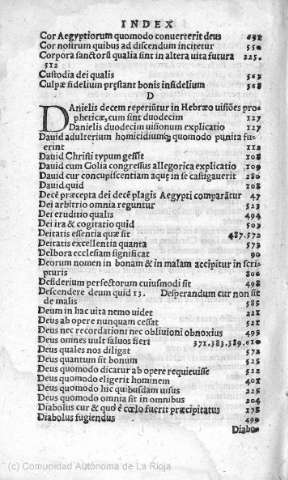 INDEX
Cor Aegyptiorum quomodo conuerterit deus 492
Cor nostrum quibus ad discendum incitetur 550
Corpora sanctorũ qualia sint in altera vita futura 225.
512
Custodia dei qualis 508
Culpæ fidelium præstant bonis infidelium 568
D
Danielis decem reperiũtur in Hebræo uisiões pro
pheticæ, cum sint duodecim 127
Danielis duodecim uisionum explicatio 127
Dauid adulterium homicidiumq; quomodo punita fu-
erint 112
Dauid Christi typum gessit 108
Dauid cum Golia congressus allegorica explicatio 109
Dauid cur concupiscentiam aquę in se castigauerit 280
Dauid quid 108
Decē præcepta dei decē plagis Aegypti comparãtur 47
Dei arbitrio omnia reguntur 523
Dei eruditio qualis 494
Dei ira & cogitatio quid 503
Deitatis essentia quæ sit 487.572
Deitatis excellentia quanta 573
Delbora ecclesiam significat 90
Deorum nomen in bonam & in malam accipitur in scri-
pturis 806
Desiderium persectorum cuiusmodi sit 498
Descendere deum quid 13. Desperandum cur non sit
de malis 585
Deum in hac uita nemo uidet 221
Deus ab opere nunquam cessat 521
Deus nec recordationi nec obliuioni obnoxius 499
Deus omnes uult saluos fieri 371.383.389.610
Deus quales nos diligat 572
Deus quantum sit bonum 525
Deus quomodo dicatur ab opere requieuisse 522
Deus quomodo elegerit hominem 401
Deus quomodo hic quibusdam uisus 225
Deus quomodo omnia sit in omnibus 204
Diabolus cur & quõ e cœlo fuerit præcipitatus 178
Diabolus fugiendus 499
Diabo-
(c) Comunidad Autónoma de La Rioja